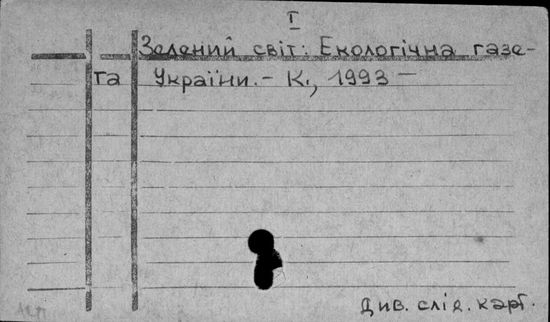 I
Зелений світ: Екологічна газе-
та України. – К., 1993 –
Див. слід. карт.